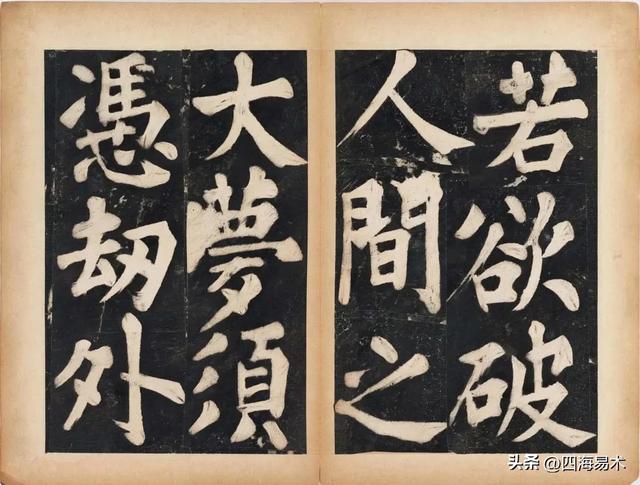 若欲破
人間之
大夢須
憑劫外
头条 @四海易木